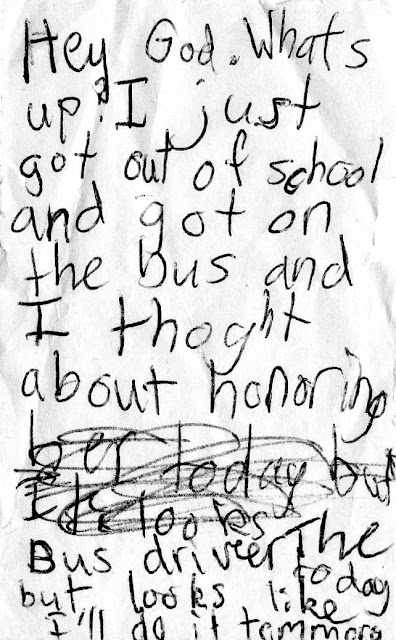 Hey God. Whats
up? I just
got out of school
and got on
the bus and
I thoght
about honoring
her today but
It looks
The
Bus driver
today
but looks like
I'll do it